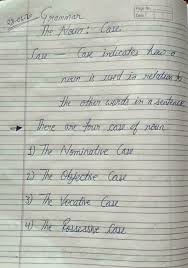 Grammar
Page No.
Date
The Noun : Case
Case Case indicates how a
noun is used in relation to
the other words in a sentence
→ There are four case of noun
1) The Nominative Case
2) The Objective Case
3) The Vocative Case
4) The Possessive Case